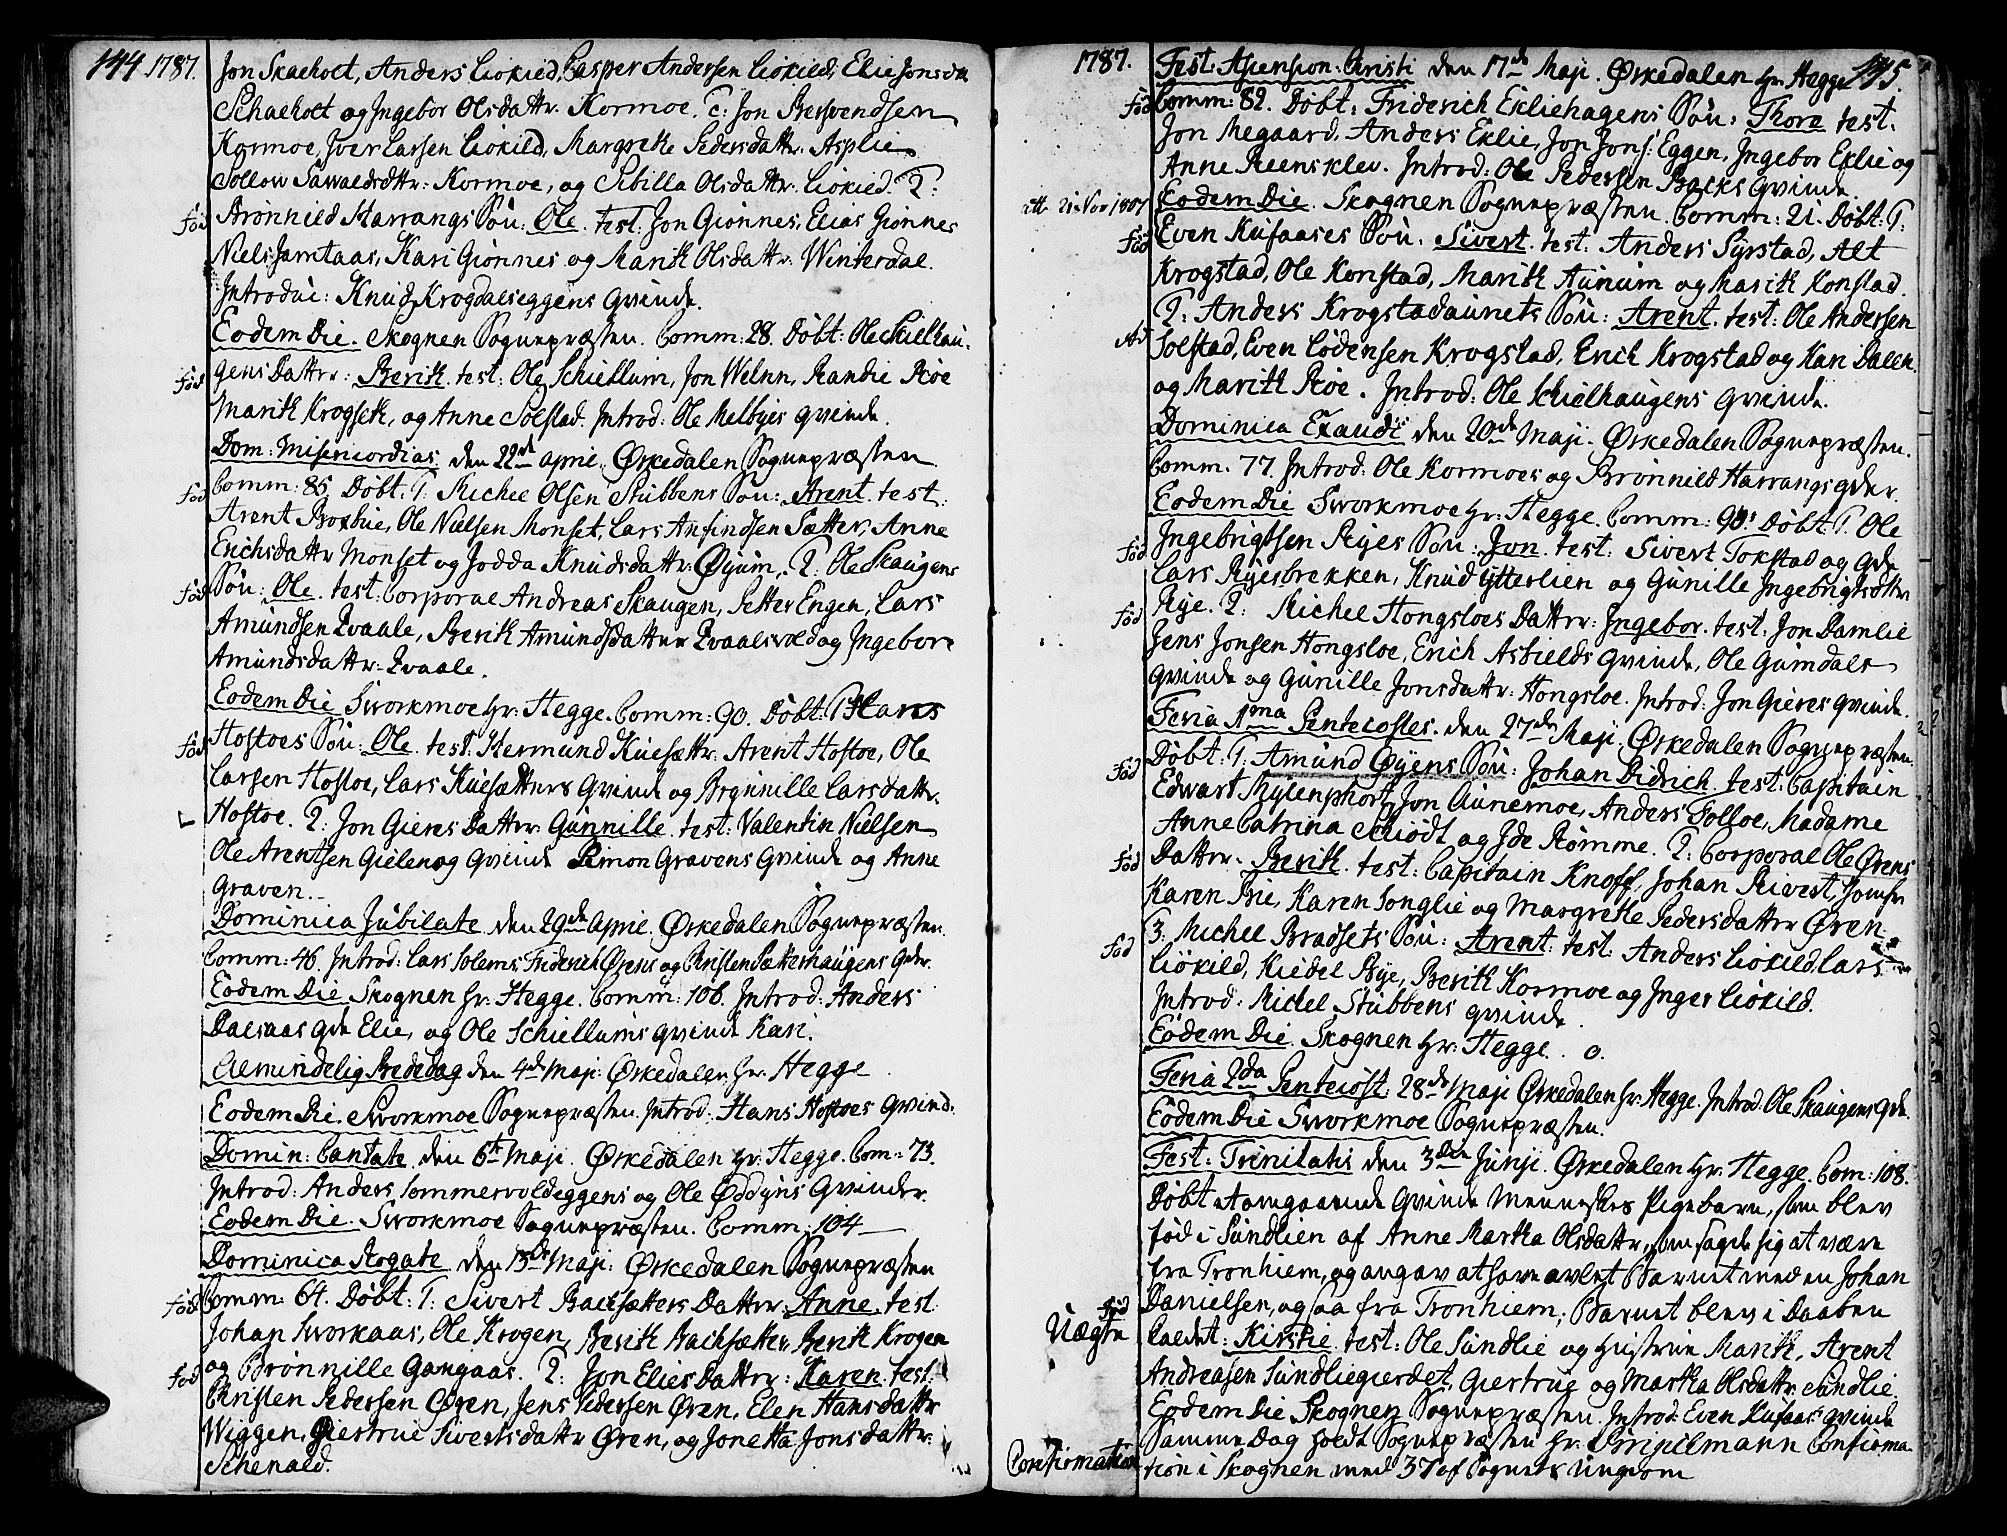 144. 1787.
Jon Skaeholt, Anders Liøkied, Casper Andersen Liøkild, Elie Jonsda
Schaeholt og Ingebor Olsdattr. Kormoe. T: Jon Bersvendsen
Kormoe, Iver Larsen Liøkild, Margrethe Pedersdattr. Asplie
Sollow Sawaldsdttr: Kormoe, og Sibilla Olsdattr. Liøkied. 2:
fød Brønnild Harrangs Søn: Ole. test. Jon Giønnes, Elias Giønnes
Niels Jamtaas, Kari Giønnes og Marith Olsdattr. Winterdal.
Introdui: Knud Krogdalseggens Qvinde.
Eodem Die. Skognen Sognepræsten. Comm: 28. Døbt: Ole Skielhau-
fød gens Dattr: Berith. test: Ole Schiellum, Jon Welnn, Randie Roe
Marith Krogseth, og Anne Solstad. Introd: Ole Melbyes qvinde.
Dom: Misericordias den 22de April. Ørkedalen Sognepræsten.
fød Comm: 85. Døbt: 1: Michel Olsen Stubbens Søn: Arent. test:
Arent Brosbie, Ole Nielsen Monset, Lars Anfindsen Sætter, Anne
Erichsdattr Monset og Jodda Knudsdattr: Øyum. 2: Ole Skaugens
fød Søn: Ole. test: Corporal Andreas Skaugen, Petter Engen, Lars
Amundsen Qvaale, Berith Amundsdatter Qvaalsvold og Ingebor
Amundsdattr: Qvaale.
Eodem Die Sworkmoe Hr: Hegge. Comm: 90. Døbt: 1 Hans
fød Hoftoes Søn: Ole. test: Hermund Kuesættr. Arent Hoftoe, Ole
Larsen Hoftoe, Lars Kuesætters Qvinde og Brynnille Larsdattr.
Hoftoe. 2: Jon Gieres Dattr: Gunnille. test: Valentin Nielsen
Ole Arentsen Gielen og Qvinde Simon Gravens Qvinde og Anne
Graven.
Dominica Jubilate den 29de April. Ørkedalen Sognepræsten.
Comm: 46. Introd: Lars Solems, Friderich Ørens og Christen Sætterhaugens Qdr.
Eodem Die Skognen Hr: Hegge. Comm: 106. Introd: Anders
Dalsaas Qde Elie, og Ole Schiellums qvinde Kari.
Almindelig Bededag den 4de Maji: Ørkedalen Hr. Hegge
Eodem Die. Sworkmoe Sognepræsten. Introd: Hans Hoftoes Qvind.
Domin: Cantate den 6te Maji. Ørkedalen Hr. Hegge. Com: 73.
Introd: Anders Sommervoldeggens og Ole Oddyns Qvinder.
Eodem Die. Sworkmoe Sognepræsten. Comm: 104
Dominica Rogate den 13de Maji: Ørkedalen Sognepræsten
fød Comm: 64. Døbt: 1: Sivert Bachsætters Dattr: Anne. test
Johan Sworkaas, Ole Krogen, Berith Bachsætter, Berith Krogen
og Brønnille Gangaas. 2: Jon Elies Dattr: Karen. test:
fød Christen Pedersen Øren, Jens Pedersen Øren, Elen Hansdattr
Wiggen, Giertrue Sivertsdattr Øren, og Jonetta Jonsdattr:
Schenald.
1787. 145.
Fest: Ascension: Christi den 17de Maji. Ørkedalen Hr Hegge
fød Comm: 82. Døbt: Friderich Ekliehagens Søn: Thore test.
Jon Megaard, Anders Eklie, Jon Jons: Eggen, Ingebor Eklie og
Anne Reensklev. Introd: Ole Pedersen Backs Qvinde.
att. 21 Nov 1807 Eodem Die. Skognen Sognepræsten. Comm: 21. Døbt: 1:
fød Even Kufaases Søn: Sivert. test: Anders Syrstad, Alt
Krogstad, Ole Konstad, Marith Aunum og Marith Konstad.
2: Anders Krogstadaunets Søn: Arent. test: Ole Andersen
Solstad, Even Lodensen Krogstad, Erich Krogstad og Kari Dalen.
og Marith Roe. Introd: Ole Schielhaugens Qvinde.
Dominica Exaudi den 20de Maji. Ørkedalen Sognepræsten.
Comm. 77. Introd: Ole Kormoes og Brønnild Harrangs Qder.
Eodem Die Sworkmoe Hr: Hegge. Comm: 90. Døbt: 1. Ole
fød Ingebrigtsen Ryes Søn: Jon. test: Sivert Tokstad og Qde
Lars Ryesbrekken, Knud Ytterlien og Gunille Ingebrigtsdttr
fød Rye. 2: Michel Hongsloes Dattr: Ingebor. test: Jon Damlie
Jens Jonsen Hongsloe, Erich Asfields Qvinde, Ole Gumdals
Qvinde og Gunille Jonsdattr: Hongsloe. Introd: Jon Gieres Qvinde.
Feria 1ma Pentecostes. den 27de Maji. Ørkedalen Sognepræsten.
fød Døbt: 1: Amund Øyens Søn: Johan Didrich. test: Capitain
Edwart Mylenphort, Jon Aunemoe, Anders Solloe, Madame
Anne Catrina Schiødt og Ide Rømme. 2: Corporal Ole Ørens
fød Dattr: Berith. test: Capitain Knoff, Johan Sivert, Jomfr
Karen Brie, Karen Songlie og Margrethe Pedersdattr Øren.
fød 3. Michel Bradsets Søn: Arent. test: Anders Liøkild, Lars
Liøkild, Kiedel Rye, Berith Kormoe og Inger Liøkild.
Introd: Michel Stubbens qvinde.
Eodem Die. Skognen Hr: Hegge. o.
Feria 2da Pentecost: 28de Maji Ørkedalen Hr. Hegge. Introd: Ole Skaugens Qde.
Eodem Die Sworkmoe Sognepræsten.
Fest: Trinitatis den 3die Junji. Ørkedalen Hr. Hegge. Com: 108.
Døbt et omgaaende Qvinde Menneskes Pigebarn, som blev
fød i Sundlien af Anne Martha Olsdattr, som sagde sig at være
fra Tronhiem, og angav at have avlet Barnet med en Johan
fød Danielsen, ogsaa fra Tronhiem; Barnet blev i Daaben
Uægte Kaldet: Kirstie. test: Ole Sundlie og Hustrue Marith, Arent
Andreasen Sundliegierdet, Giertrue og Martha Olsdattr Sundlie.
Eodem Die Skognen Sognepræsten. Introd: Even Kufaas Qvinde
Samme Dag holdt Sognepræsten Hr: Stripelmann Confirma-
Confirmation tion i Skognen med 37 af Sognets Ungdom